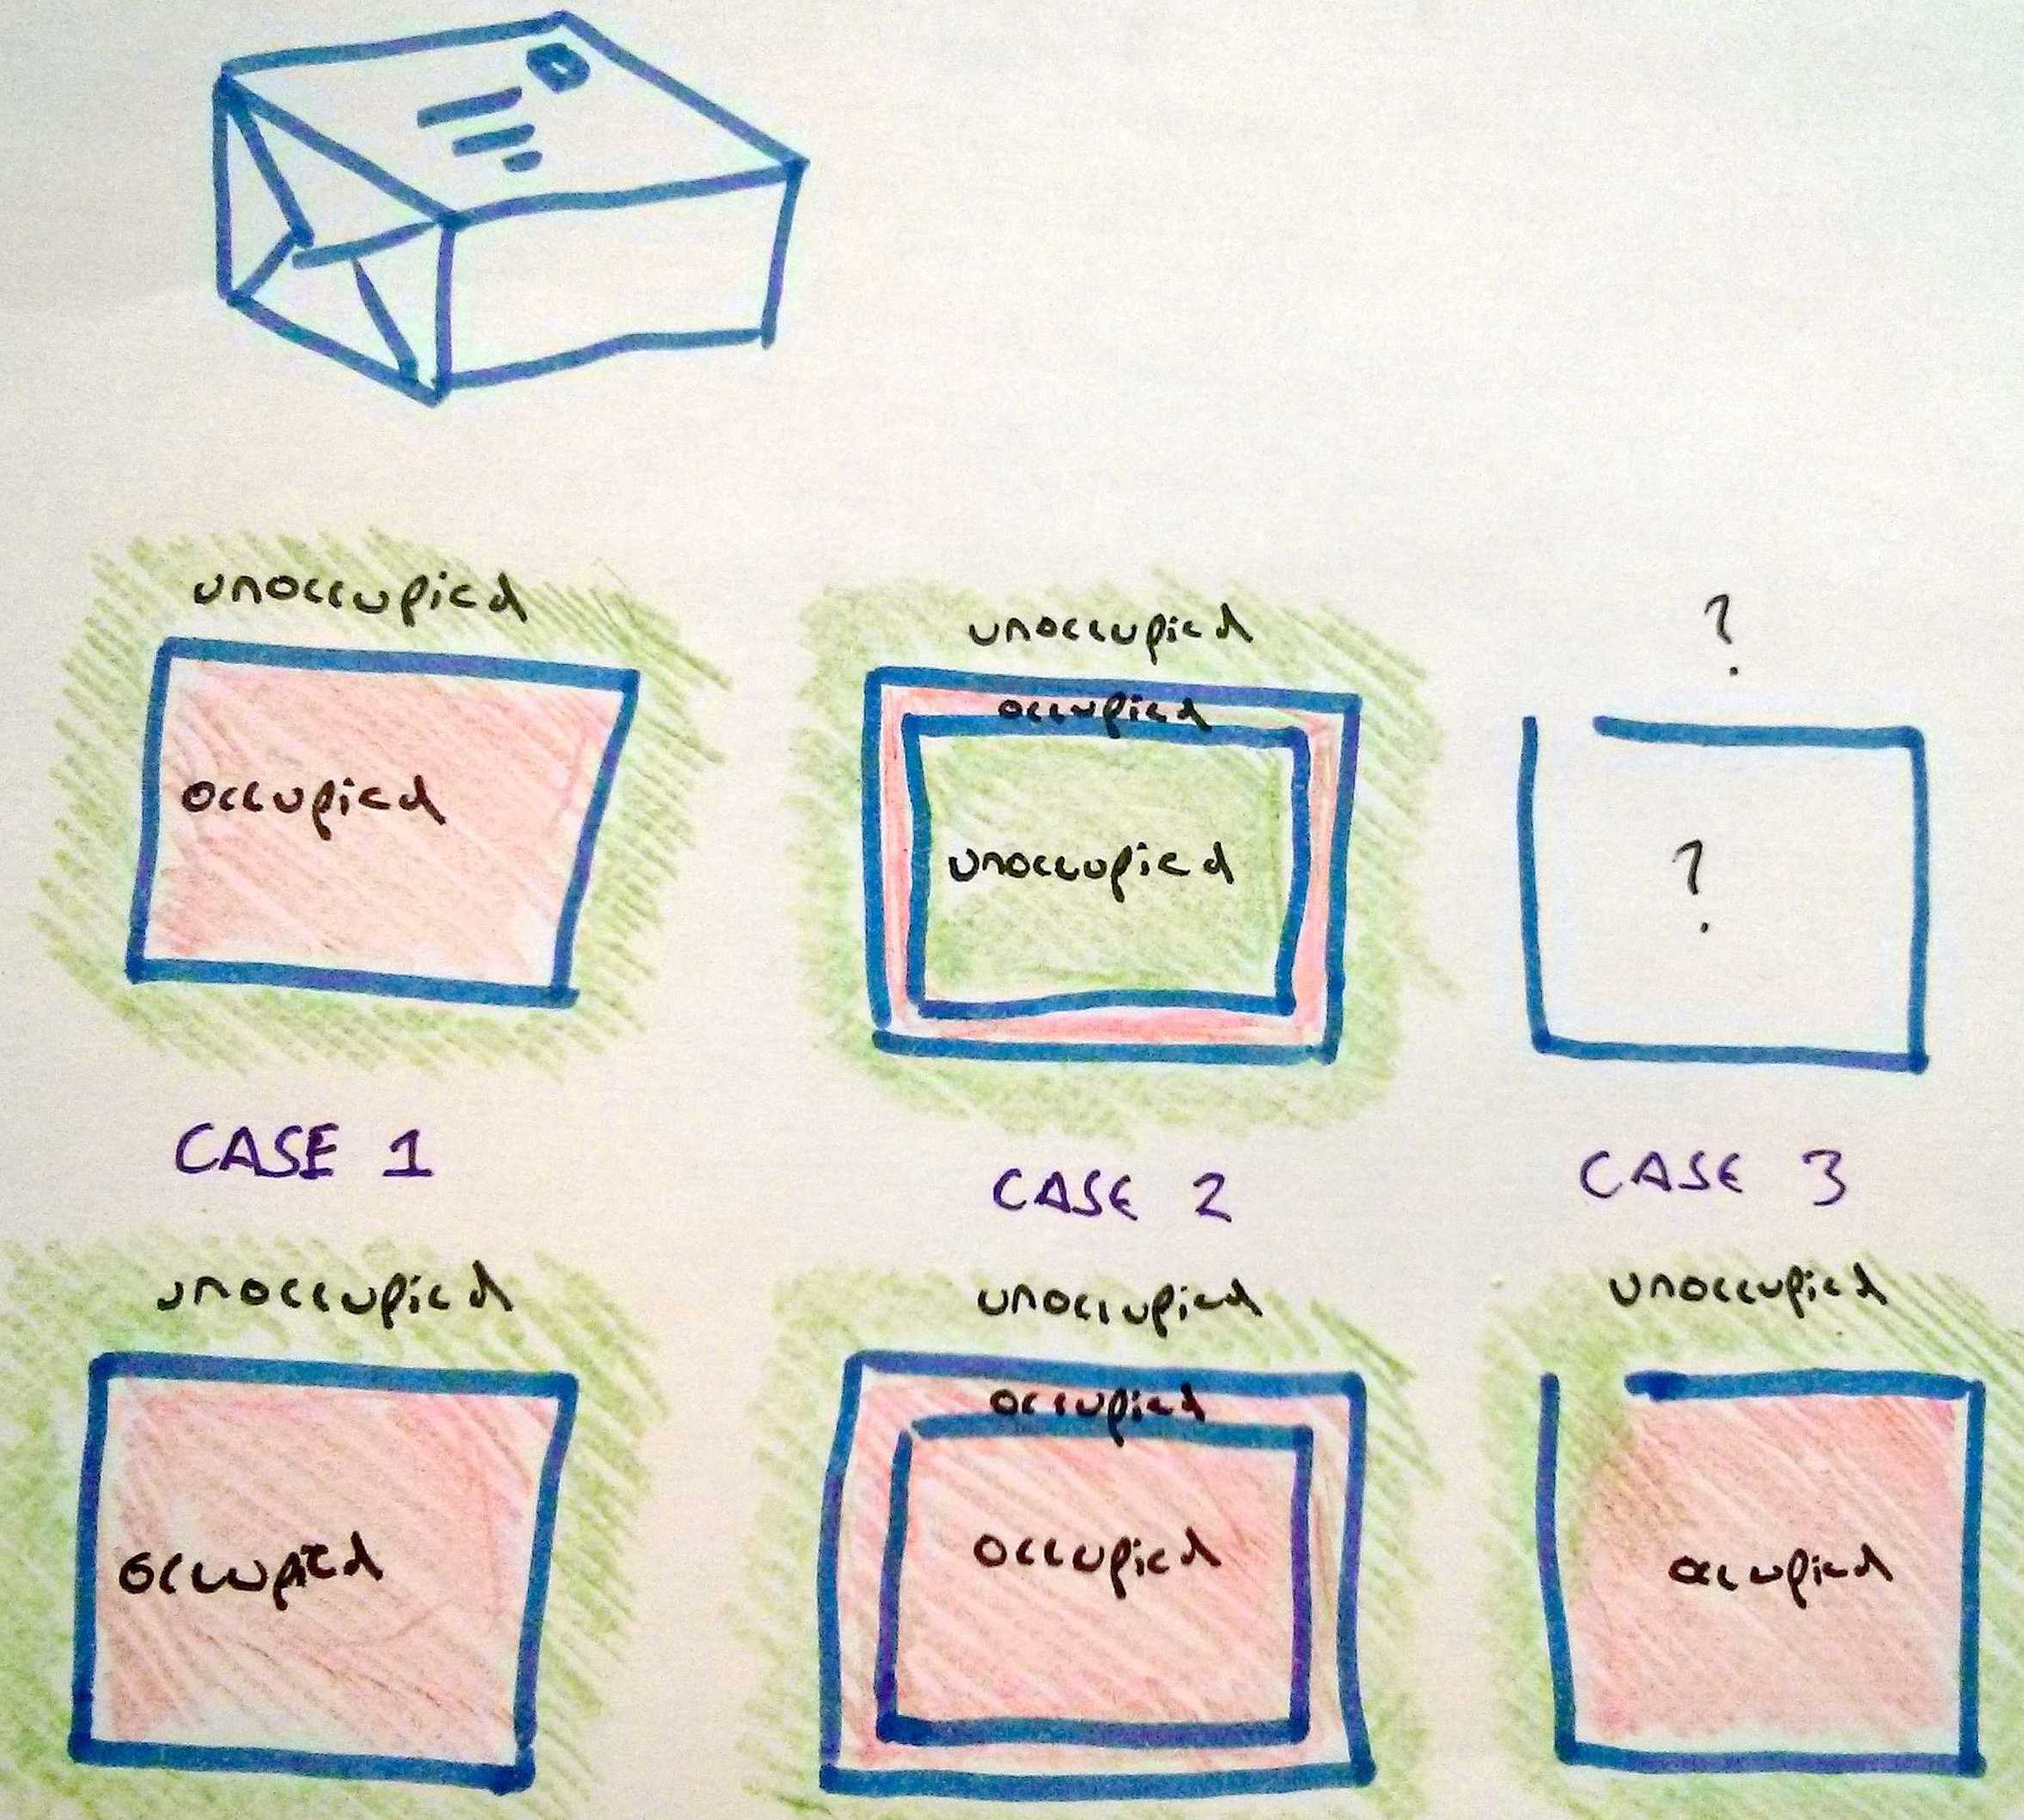 unoccupied
occupied
unoccupied
occupied
unoccupied
?
?
CASE 1
CASE 2
CASE 3
unoccupied
occupied
unoccupied
occupied
occupied
unoccupied
occupied